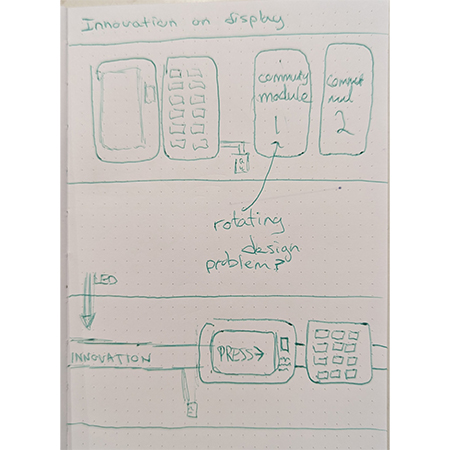 Innovation on display
commuity
module
1
2
rotating
design
problem?
LED
INNOVATION
PRESS→